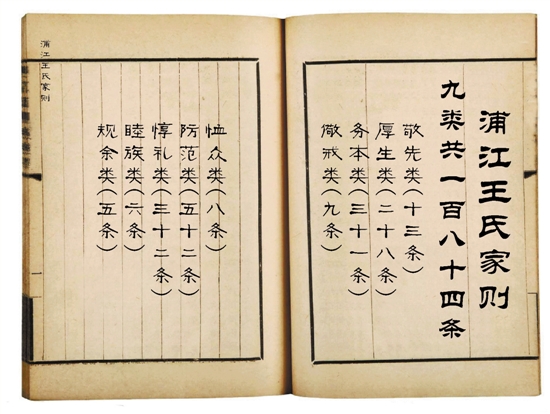 浦江王氏家则
九类共一百八十四条
敬先类(十三条)
厚生类(二十八条)
务本类(三十一条)
儆戒类(九条)
恤众类(八条)
防范类(五十二条)
惇礼类(三十二条)
睦族类(六条)
规余类(五条)
浦江王氏家则
一